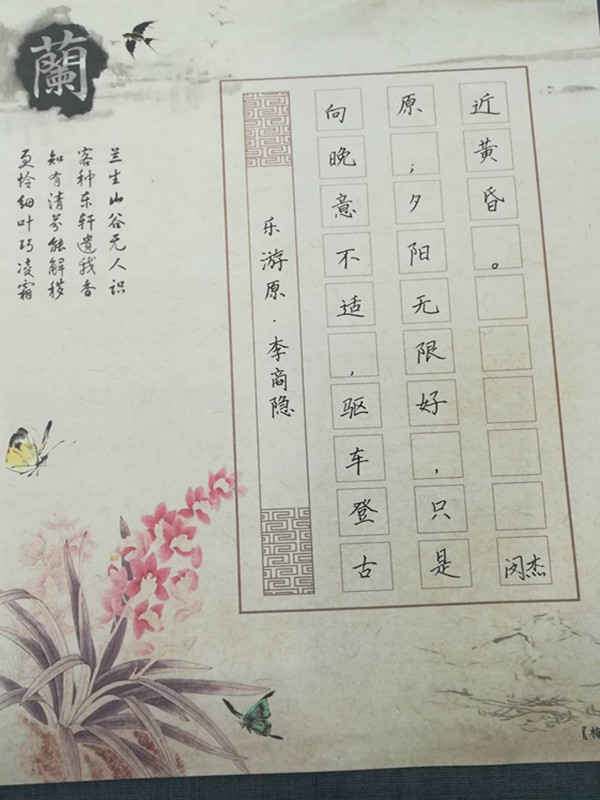 蘭
兰生山谷无人识
客种东轩遗我香
知有清芬能解秽
更怜细叶巧凌霜
乐游原·李商隐
向晚意不适，驱车登古
原；夕阳无限好，只是
近黄昏。
闵杰
〖梅